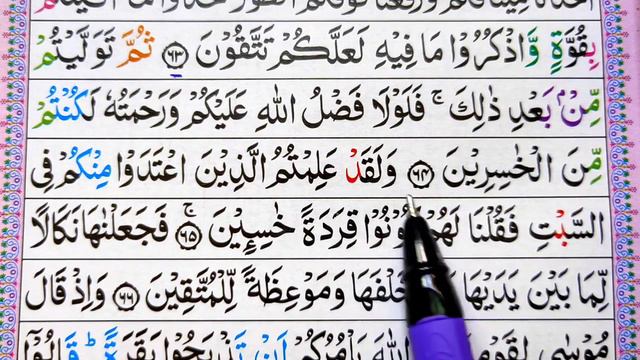 بِقُوَّةٍ وَّاذْكُرُوْا مَا فِيْهِ لَعَلَّكُمْ تَتَّقُوْنَ ﴿٦٣﴾ ثُمَّ تَوَلَّيْتُمْ
مِّنْۢ بَعْدِ ذٰلِكَ ۚ فَلَوْلَا فَضْلُ اللّٰهِ عَلَيْكُمْ وَرَحْمَتُهٗ لَكُنْتُمْ
مِّنَ الْخٰسِرِيْنَ ﴿٦٤﴾ وَلَقَدْ عَلِمْتُمُ الَّذِيْنَ اعْتَدَوْا مِنْكُمْ فِى
السَّبْتِ فَقُلْنَا لَهُمْ قِرَدَةً خٰسِـِٕيْنَ ۚ ﴿٦٥﴾ فَجَعَلْنٰهَا نَكَالًا
لِّمَا بَيْنَ يَدَيْهَا خَلْفَهَا وَمَوْعِظَةً لِّلْمُتَّقِيْنَ ﴿٦٦﴾ وَاِذْ قَالَ
اللّٰهَ يَاْمُرُكُمْ اَنْ تَذْبَحُوْا بَقَرَةً ؕ قَالُوْٓا